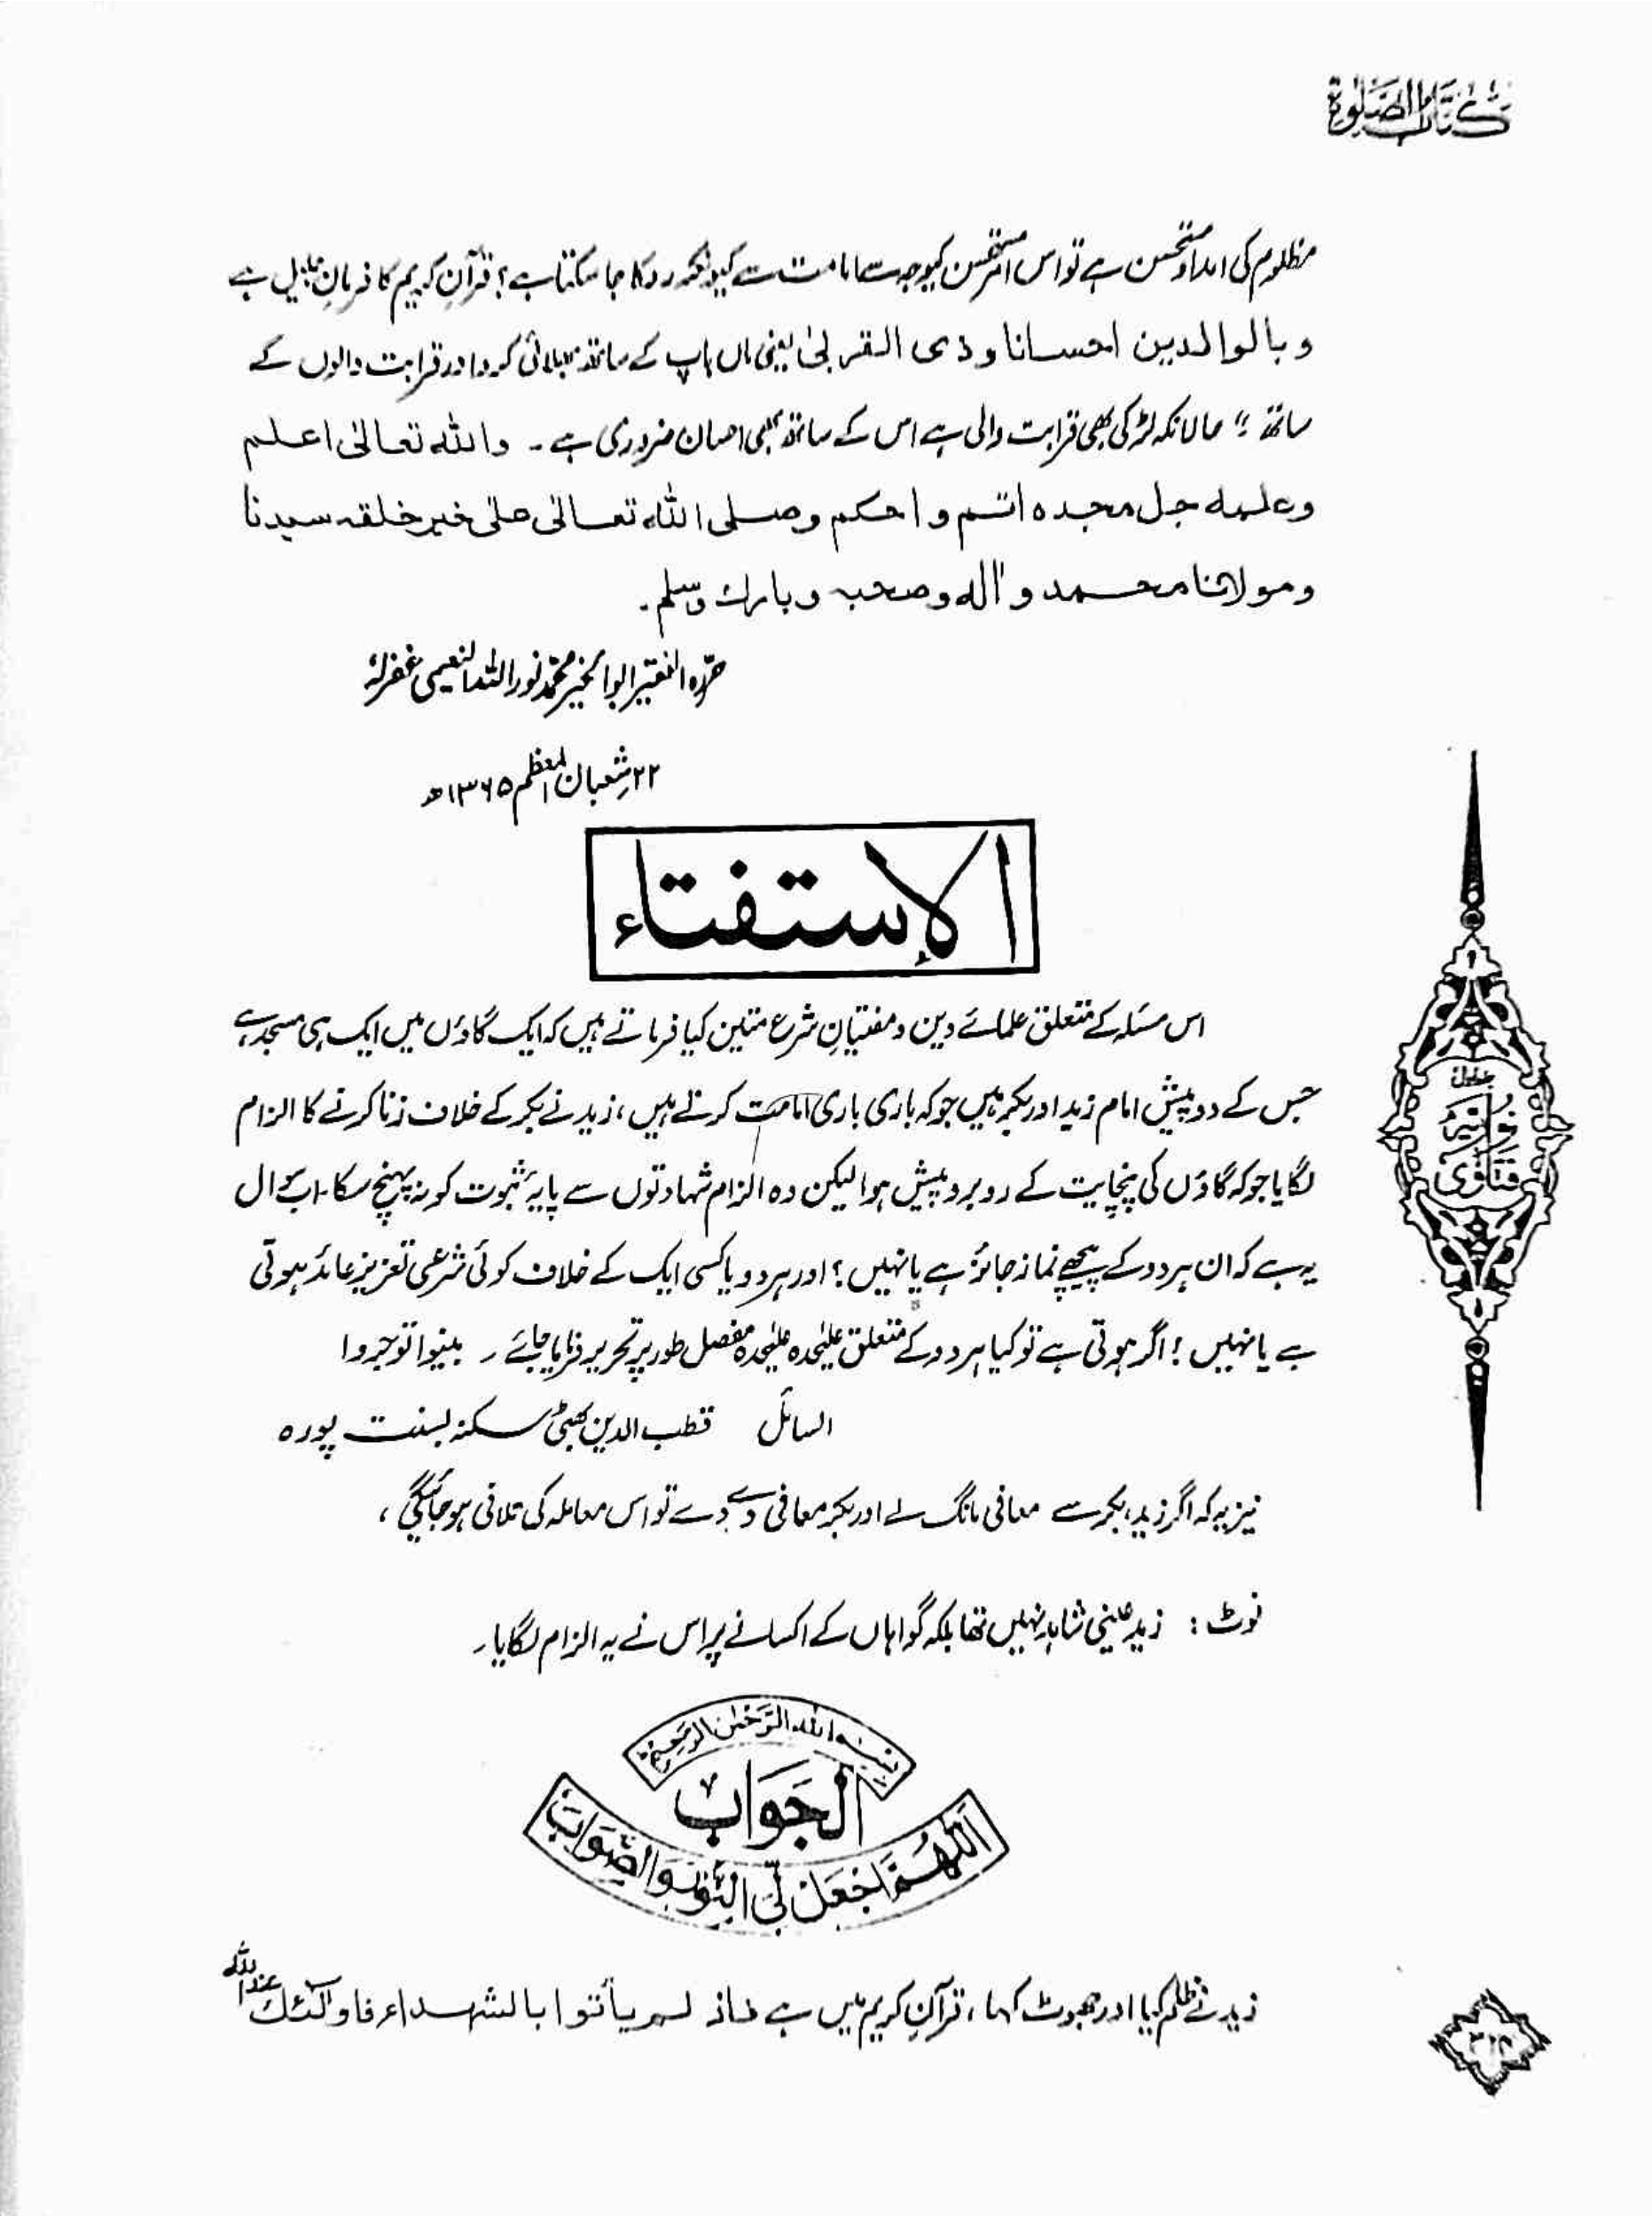 كتاب الصلوٰة
مظلوم کی امداد مستحسن ہے تو اس امر مستحسن کیوجہ سے امامت سے کیونکر روکا جا سکتا ہے؟ قرآنِ کریم کا فرمانِ جلیل ہے
وبالوالدین احسانا وذی القربیٰ یعنی ماں باپ کے ساتھ بھلائی کرو اور قرابت والوں کے
ساتھ "؛ حالانکہ لڑکی بھی قرابت والی ہے اس کے ساتھ بھی احسان ضروری ہے۔ واللہ تعالیٰ اعلم
وعلمہ جل مجدہ اتم و احکم وصلی اللہ تعالیٰ علیٰ خیر خلقہ سیدنا
ومولانا محمد واٰلہ وصحبہ وبارک وسلم۔
حرّرہ الفقیر ابوالخیر محمّد نور اللہ النعیمی غفرلہٗ
۲۲ شعبان المعظم ۱۳۶۵ھ
الإستفتاء
اس مسئلہ کے متعلق علمائے دین و مفتیانِ شرع متین کیا فرماتے ہیں کہ ایک گاؤں میں ایک ہی مسجد ہے
جس کے دو پیش امام زید اور بکر ہیں جو کہ باری باری امامت کرتے ہیں، زید نے بکر کے خلاف زنا کرنے کا الزام
لگایا جو کہ گاؤں کی پنچایت کے روبرو پیش ہوا لیکن وہ الزام شہادتوں سے پایۂ ثبوت کو نہ پہنچ سکا۔ اب سوال
یہ ہے کہ ان ہر دو کے پیچھے نماز جائز ہے یا نہیں؟ اور ہر دو یا کسی ایک کے خلاف کوئی شرعی تعزیز عائد ہوتی
ہے یا نہیں؟ اگر ہوتی ہے تو کیا ہر دو کے متعلق علیٰحدہ علیٰحدہ مفصل طور پر تحریر فرمایا جائے۔ بینوا توجروا
السائل قطب الدین بھٹی سکنہ بسنت پورہ
نیز یہ کہ اگر زید، بکر سے معافی مانگ لے اور بکر معافی دے دے تو اس معاملہ کی تلافی ہو جائیگی،
نوٹ: زید عینی شاہد نہیں تھا بلکہ گواہاں کے اکسانے پر اس نے یہ الزام لگایا۔
جلیل
فتاویٰ نوریہ
بسم اللہ الرّحمٰن الرّحیم
اَلجَوَاب
اَللّٰھُمَّ اجْعَلْ لِیَ النُّوْرَ وَالصَّوَابَ
زید نے ظلم کیا اور جھوٹ کہا، قرآنِ کریم میں ہے فاذ لم یأتوا بالشھداء فاولٰٓئک عند اللہ
۳۱۴